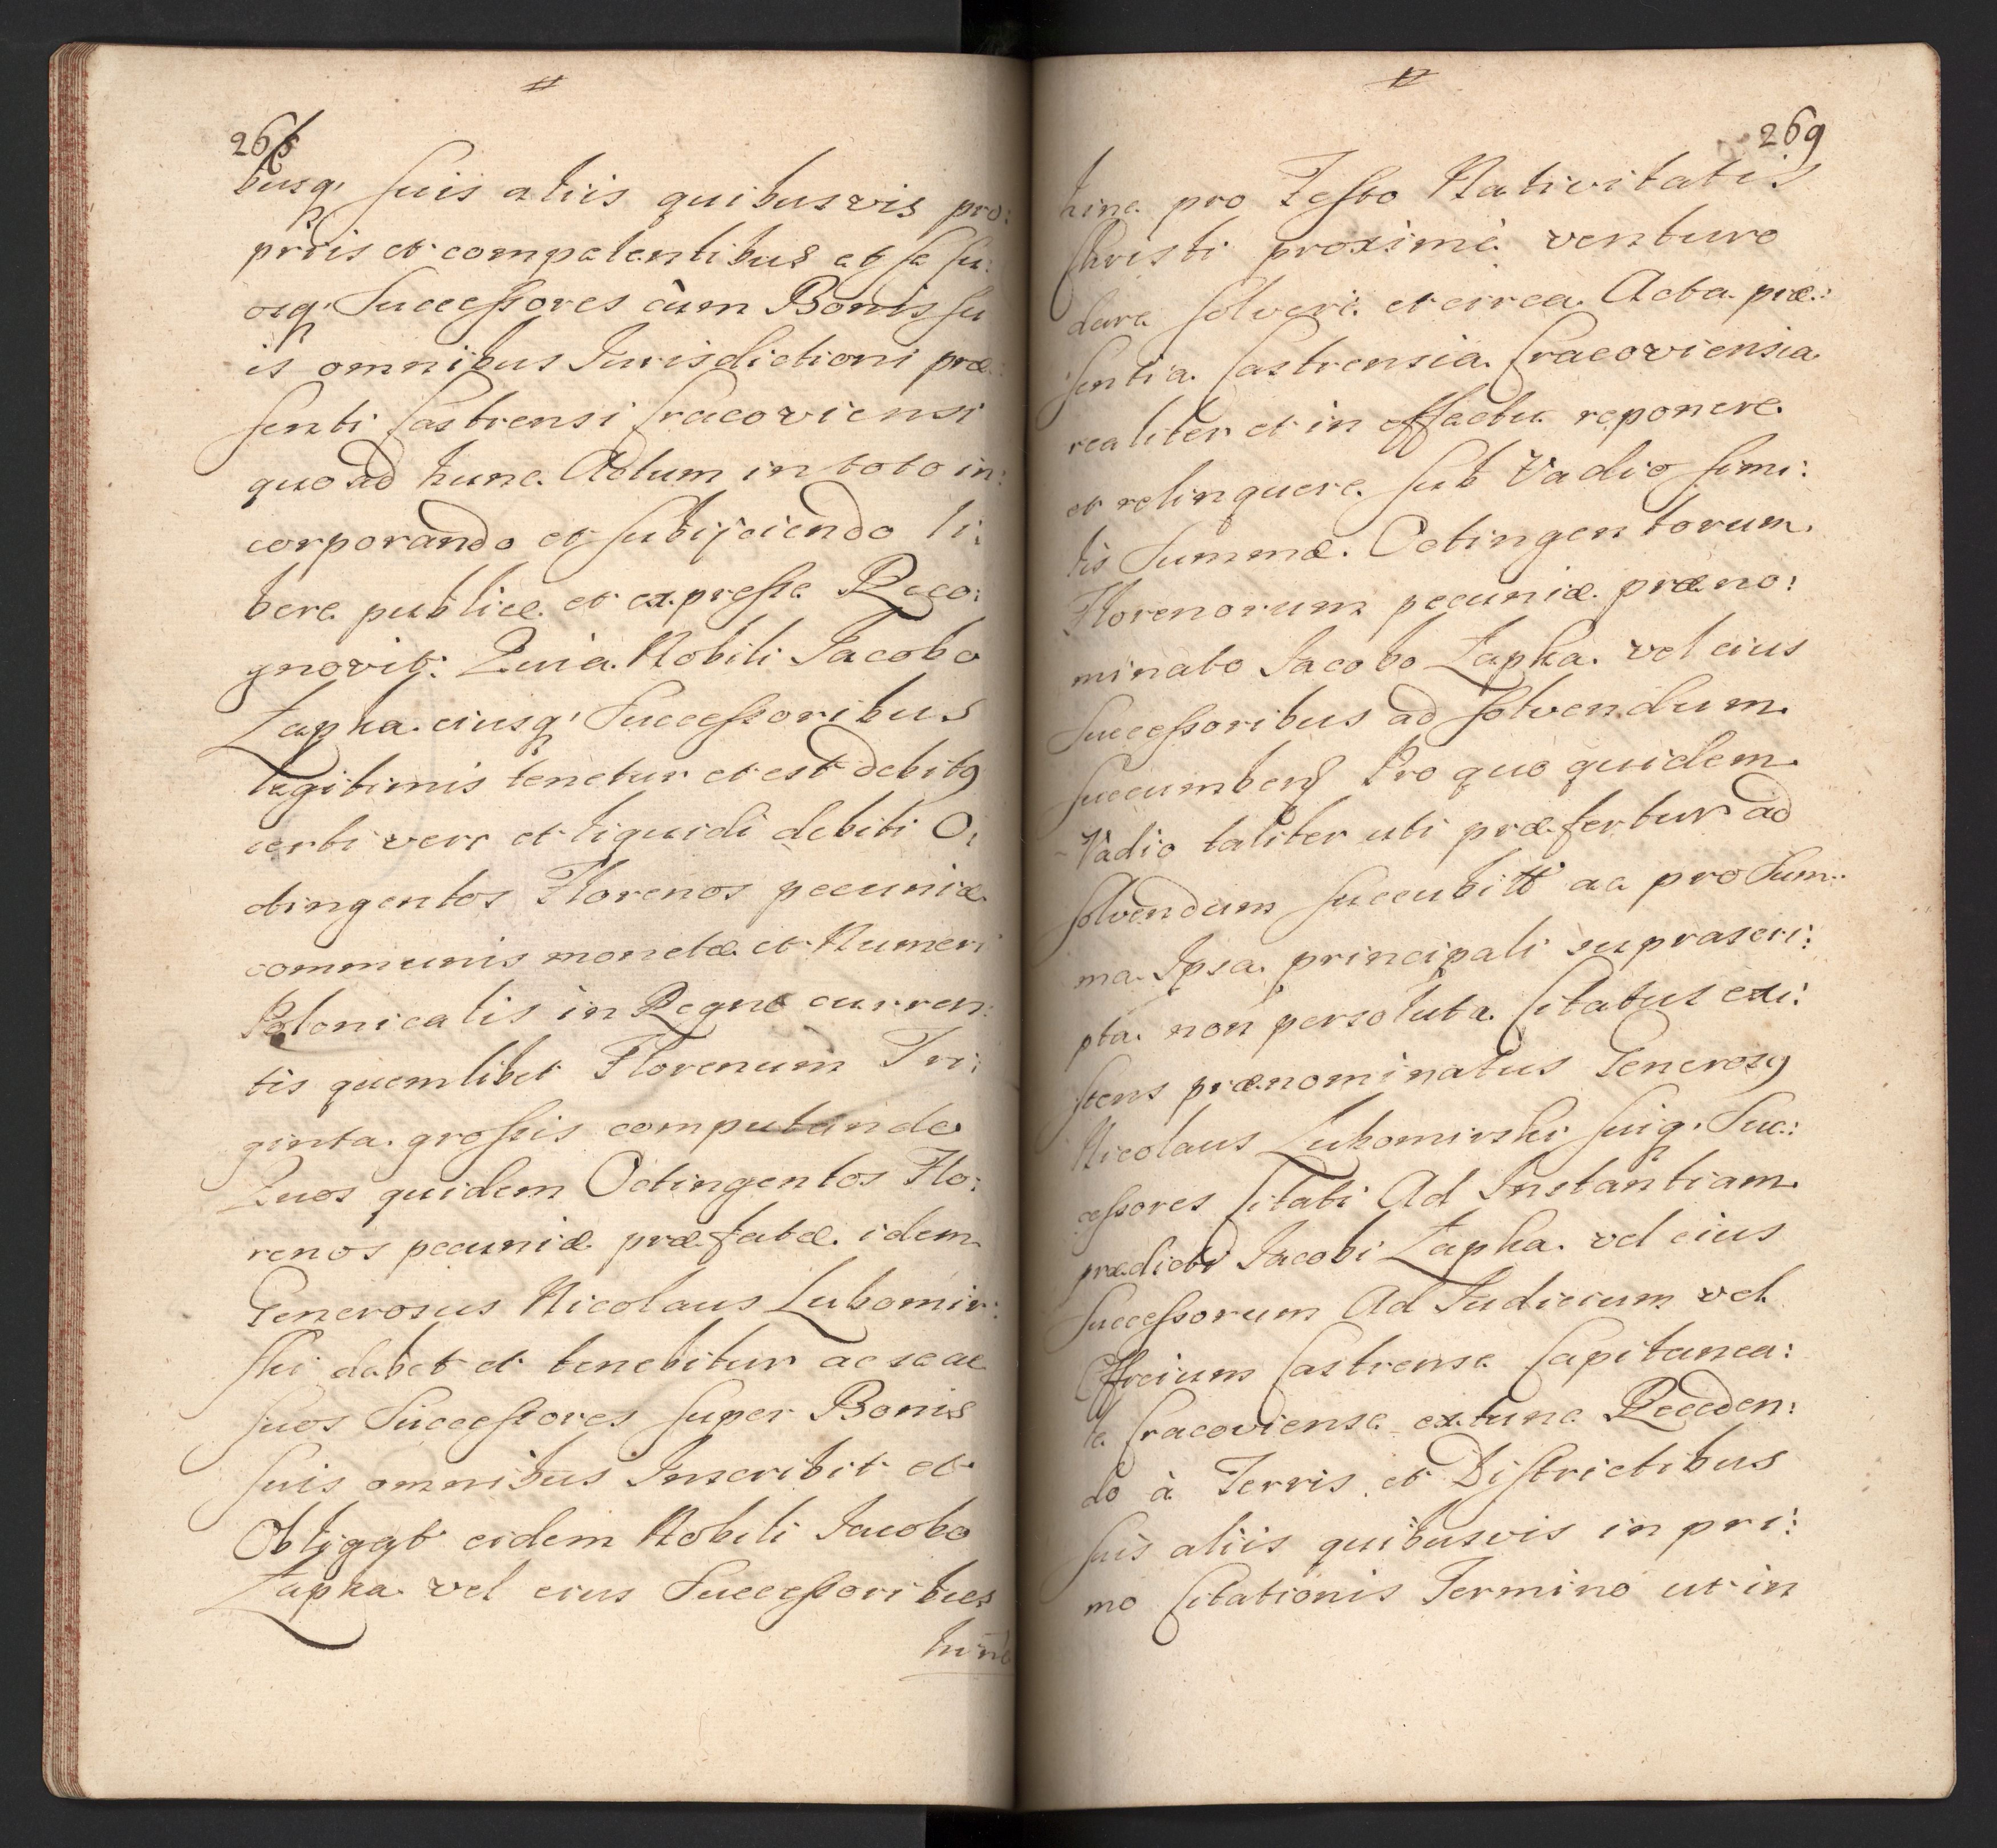 268
busq, suis aliis quibusvis pro:
priis et competentibus et se su:
osq, Successores cum Bonis su
is omnibus Iurisdictioni præ:
senti Castrensi Cracoviensi
quo ad hunc Actum in toto in:
corporando et subiiciendo li:
bere publice et expresse Reco:
gnovit: Quia Nobili Iacobo
Zapka eiusq, Successoribus
legitimis tenetur et est debitq
certi veri et liquidi debiti O:
ctingentos Florenos pecuniæ
communis monetæ et Numeri
Polonicalis in Regno curren:
tis quemlibet Florenum Tri:
ginta grossis computando
Quos quidem Octingentos Flo:
renos pecuniæ præfatæ idem
Generosus Nicolaus Lubomir:
ski debet et tenebitur ac se ac
suos Successores super Bonis
suis omnibus Inscribit et
Obligat eidem Nobili Iacobo
Zapka vel eius Successoribus
hinc
269
hinc pro Festo Nativitatis
Christi proximè venturo
dare solvere et circa Acta præ:
sentia Castrensia Cracoviensia
realiter et in effectu reponere
et relinquere sub Vadio simi:
lis Summæ Octingentorum
Florenorum pecuniæ præno:
minato Iacobo Zapka vel eius
Successoribus ad solvendum
succumben Pro quo quidem
Vadio taliter uti præfertur ad
solvendum succubitt ac pro Sum:
ma Ipsa principali suprascri:
pta non persoluta Citatus exi:
stens prænominatus Generosq
Nicolaus Lubomirski suiq, Suc:
cessores Citati Ad Instantiam
prædicti Iacobi Zapka vel eius
Successorum Ad Iudicium vel
Officium Castrense Capitanea:
le Cracoviense extunc Receden:
do à Terris et Districtibus
suis aliis quibusvis in pri:
mo Citationis Termino ut in